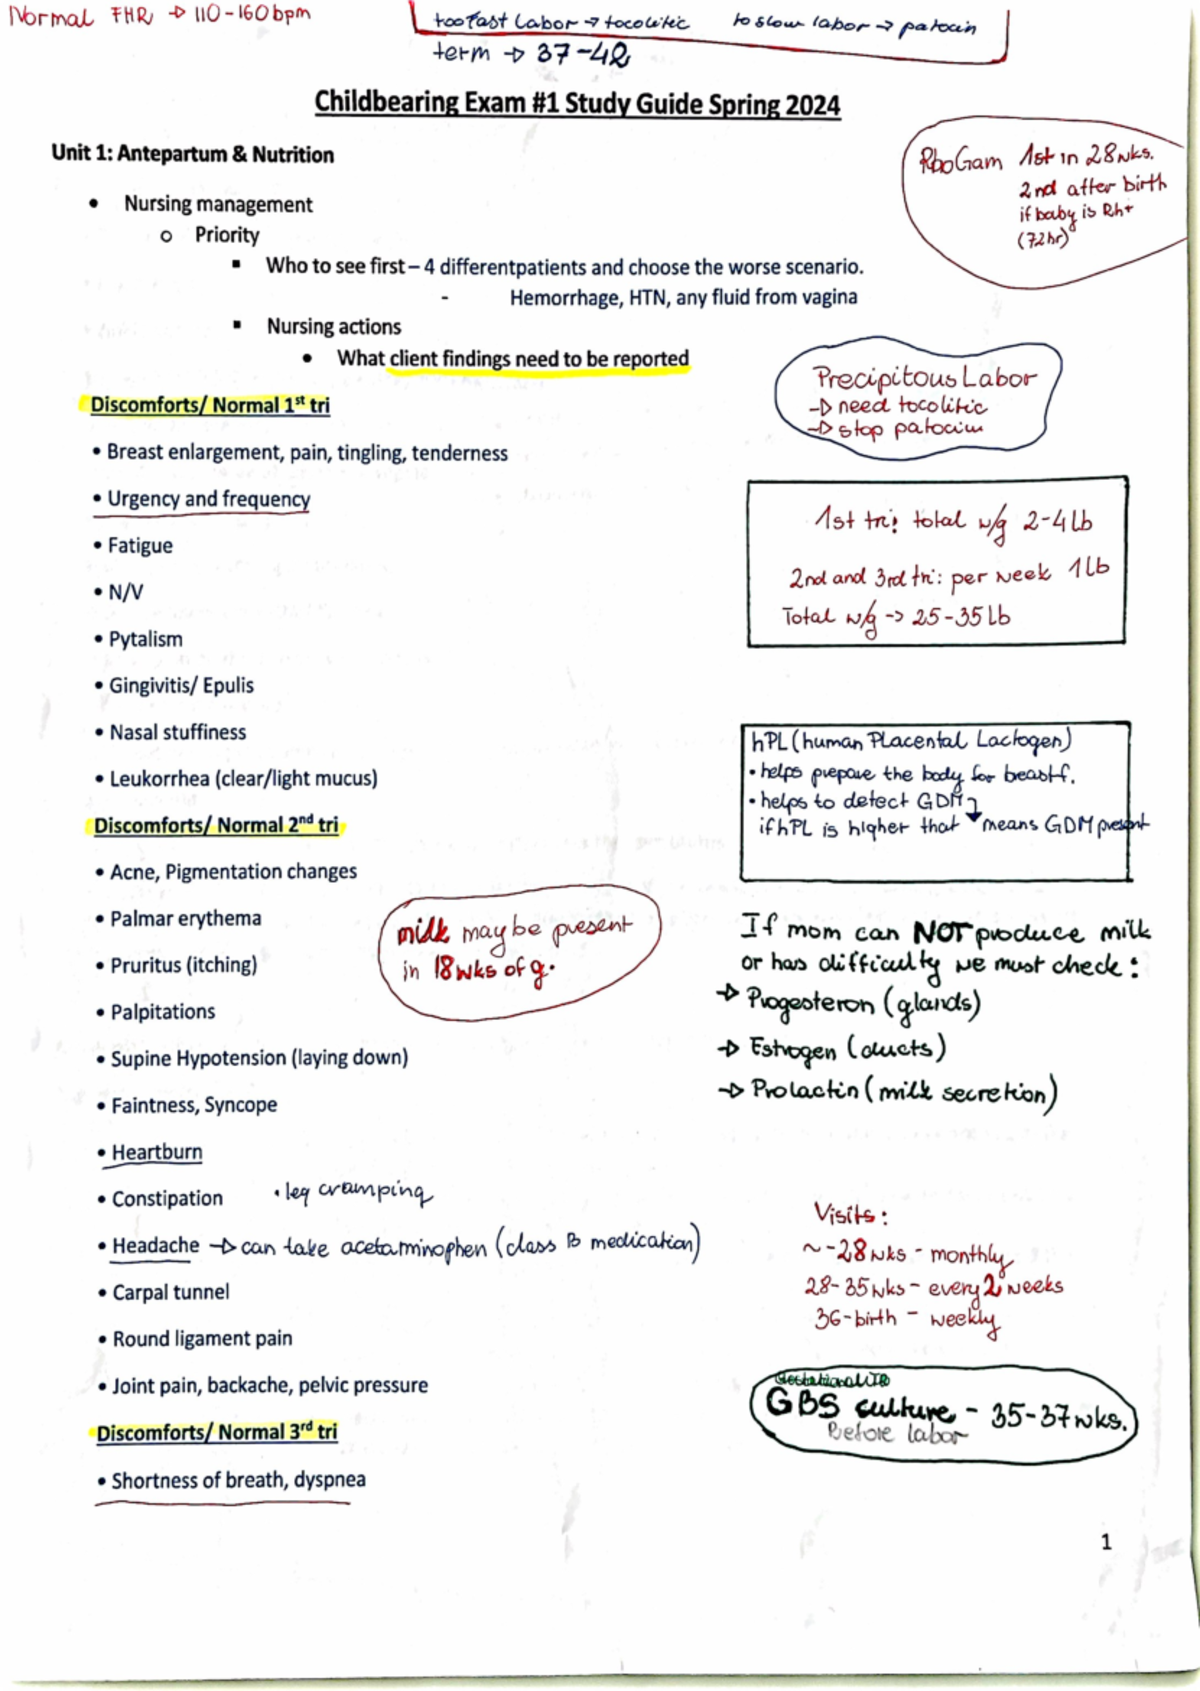 Normal FHR → 110-160bpm
too fast Labor → tocolitic to slow labor → patocin
term → 37-42
Childbearing Exam #1 Study Guide Spring 2024
Unit 1: Antepartum & Nutrition
RhoGam 1st in 28wks.
2nd after birth
if baby is Rh+
(72hr)
• Nursing management
o Priority
▪ Who to see first – 4 differentpatients and choose the worse scenario.
- Hemorrhage, HTN, any fluid from vagina
▪ Nursing actions
• What client findings need to be reported
Precipitous Labor
→ need tocolitic
→ stop patocin
Discomforts/ Normal 1st tri
• Breast enlargement, pain, tingling, tenderness
• Urgency and frequency
• Fatigue
• N/V
• Pytalism
• Gingivitis/ Epulis
• Nasal stuffiness
• Leukorrhea (clear/light mucus)
1st tri: total w/g 2-4 Lb
2nd and 3rd tri: per week 1 lb
Total w/g -> 25-35 Lb
hPL (human PLacental Lactogen)
• helps prepare the body for beastf.
• helps to detect GDM
if hPL is higher that ↓ means GDM present
Discomforts/ Normal 2nd tri
• Acne, Pigmentation changes
• Palmar erythema
• Pruritus (itching)
• Palpitations
• Supine Hypotension (laying down)
• Faintness, Syncope
• Heartburn
• Constipation • leg cramping
• Headache → can take acetaminophen (class B medication)
• Carpal tunnel
• Round ligament pain
• Joint pain, backache, pelvic pressure
milk may be present
in 18wks of g.
If mom can NOT produce milk
or has difficulty we must check:
→ Progesteron (glands)
→ Estrogen (ducts)
→ Prolactin (milk secretion)
Visits:
~ -28wks - monthly
28-35wks - every 2 weeks
36-birth - weekly
GBS culture - 35-37wks.
Before labor
Discomforts/ Normal 3rd tri
• Shortness of breath, dyspnea
1